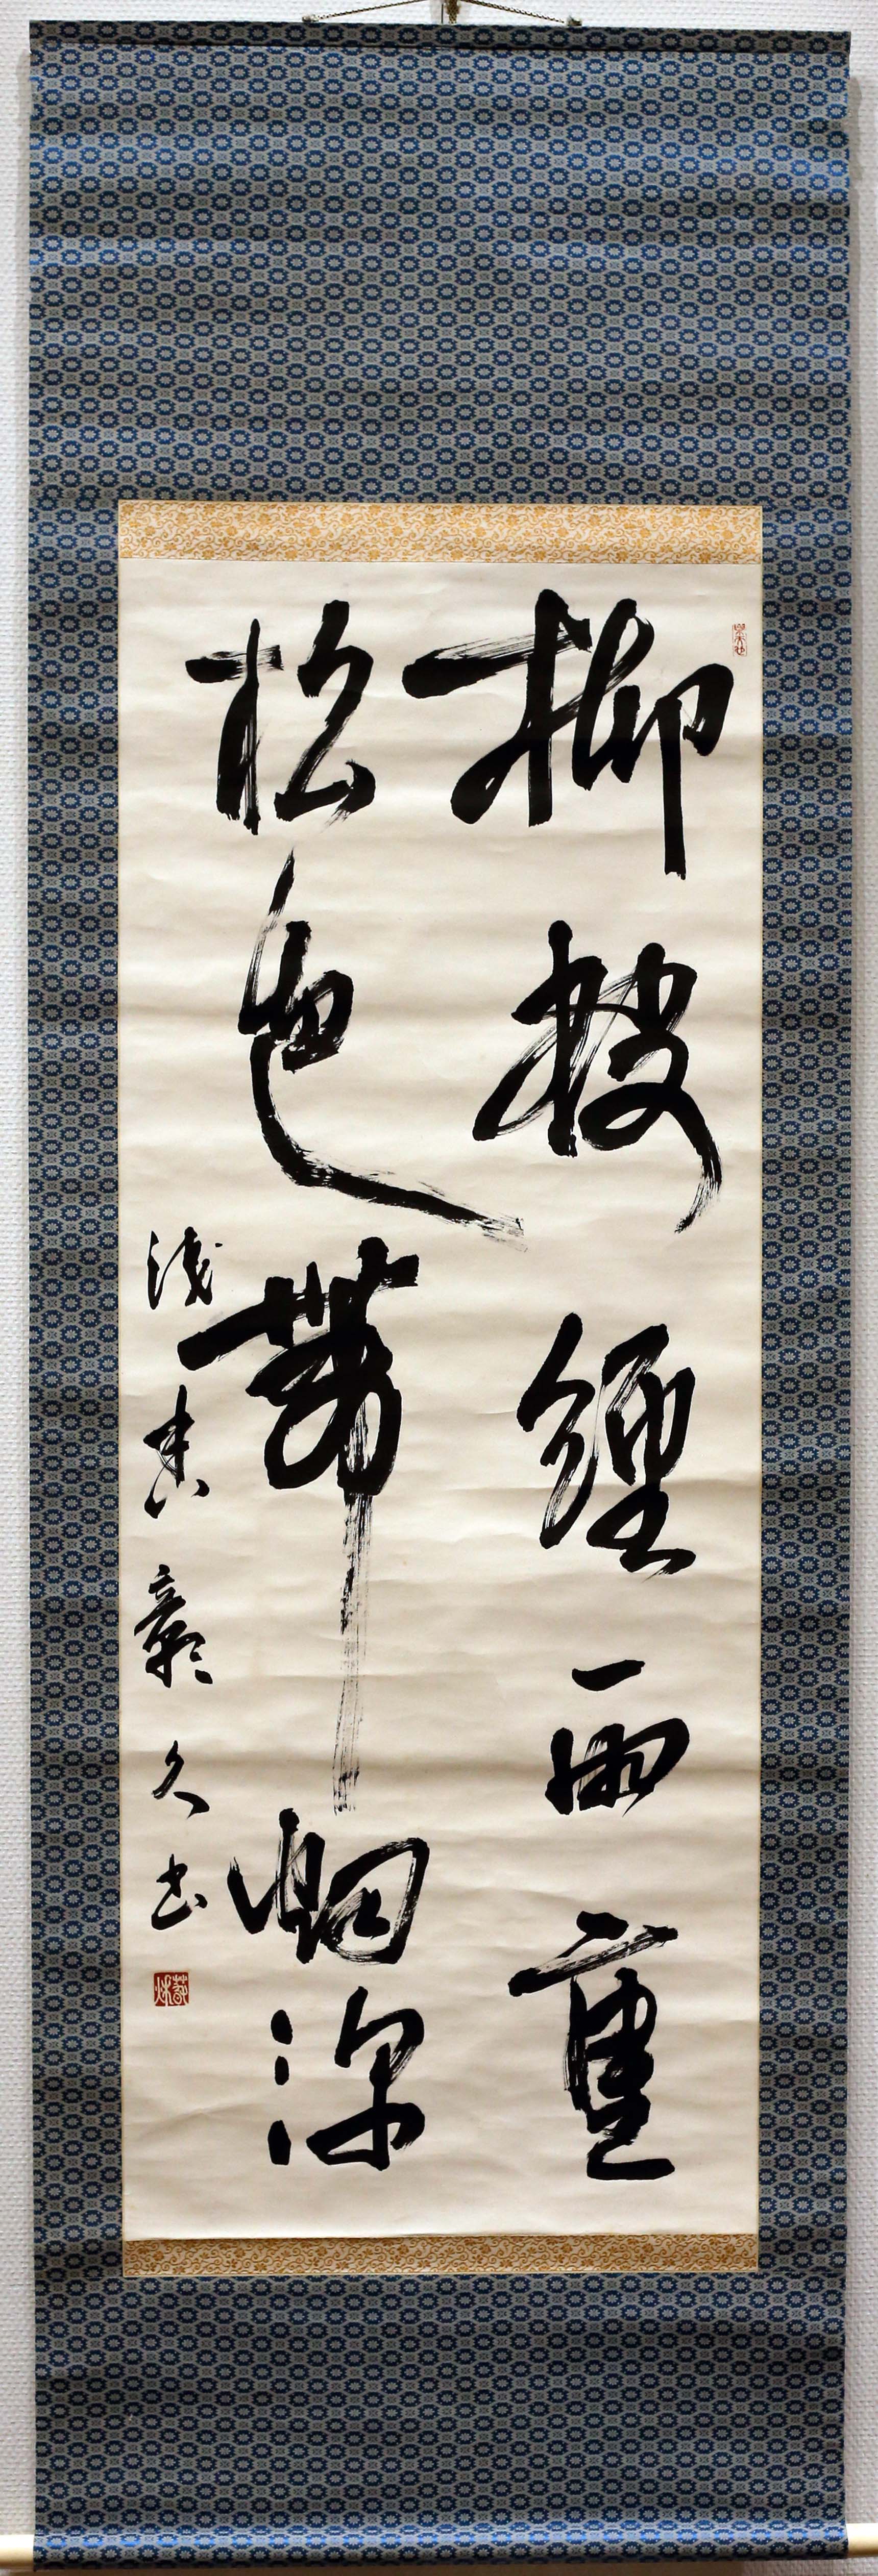 柳枝經雨重
松色帶烟深
浅香彰久書